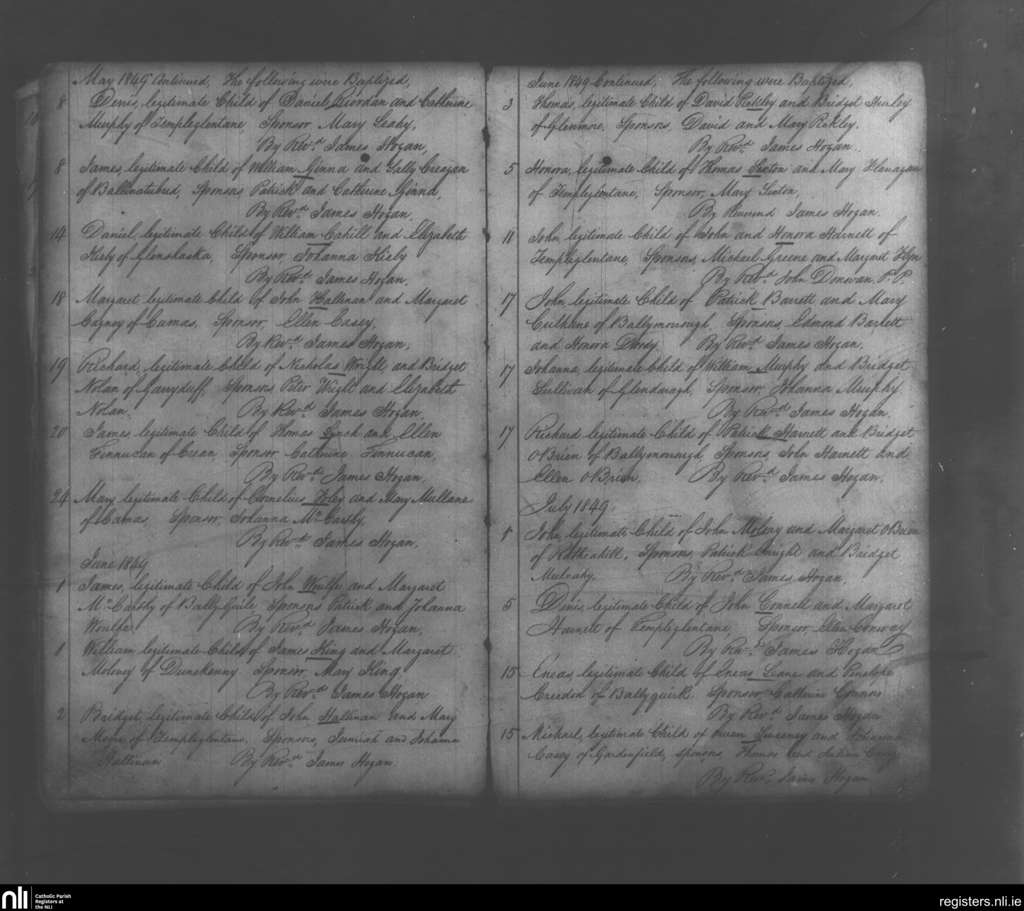 May 1849 Continued, The following were Baptized,
8 Denis, legitimate Child of Daniel Riordan and Catherine
Murphy of Templeglentane, Sponsor Mary Leahy,
By Revd. James Hogan,
8 James, legitimate Child of William Ginna and Sally Creagan
of Ballinatubrid, Sponsors Patrick and Catherine Ginna,
By Revd. James Hogan,
14 Daniel, legitimate Child of William Cahill and Elizabeth
Kiely of Glenshaska, Sponsor Johanna Kiely
By Revd. James Hogan,
18 Margaret legitimate Child of John Hallinan and Margaret
Cagney of Camas, Sponsor, Ellen Casey,
By Revd. James Hogan,
19 Richard, legitimate Child of Nicholas Wright and Bridget
Nolan of Garryduff, Sponsors Peter Wright and Elizabeth
Nolan, By Revd. James Hogan,
20 James legitimate Child of Thomas Lynch and Ellen
Finnucan of Crean, Sponsor Catherine Finnucan,
By Revd. James Hogan
24 Mary legitimate Child of Cornelius Foley and Mary Mullane
of Camas, Sponsor, Johanna McCarthy,
By Revd. James Hogan,
June 1849
1 James, legitimate Child of John Woulfe and Margaret
McCarthy of Ballyguile, Sponsors Patrick and Johanna
Woulfe, By Revd. James Hogan,
1 William, legitimate Child of James King and Margaret
Moloney of Dunekenny. Sponsor Mary King
By Revd. James Hogan
2 Bridget, legitimate Child of John Hallinan and Mary
of Templeglentane, Sponsors, Jeremiah and Johanna
Hallinan By Revd. James Hogan.
June 1849 Continued, The following were Baptized,
3 Thomas, legitimate Child of David and Bridget
of Glenmore, Sponsors, David and Mary
By Revd. James Hogan.
5 Honora, legitimate Child of Thomas Sexton and Mary Flanagan
of Templeglentane, Sponsor, Mary Sexton,
By Reverend James Hogan.
11 John, legitimate Child of John and Honora Harnett of
Templeglentane, Sponsors, Michael Greene and Margaret Flyn
By Revd. John Donovan P.P.
17 John, legitimate Child of Patrick Barrett and Mary
Culhane of Ballymorrough, Sponsors, Edmond Barrett
and Honora By Revd. James Hogan,
17 Johanna, legitimate Child of William Murphy and Bridget
Sullivan of Glendarragh, Sponsor, Johanna Murphy
By Revd. James Hogan.
17 Richard legitimate Child of Patrick Harnett and Bridget
OBrien of Ballymorrough Sponsors, John Harnett and
Ellen OBrien, By Revd. James Hogan,
July 1849,
1 John, legitimate Child of John Molony and Margaret OBrien
of Rathcahill, Sponsors, Patrick Knight and Bridget
Mulcahy, By Revd. James Hogan,
5 Denis, legitimate Child of John Connell and Margaret
Harnett of Templeglentane, Sponsor Ellen Conway
By Revd. James Hogan
15 Eneas, legitimate Child of Eneas Leane and Penelope
Creedon of Ballyquirk. Sponsor Catherine Connors
By Revd. James Hogan
15 Michael, legitimate Child of Owen Sweeney and
Casey of Gardenfield, Sponsors, Thomas and Casey
By Revd. James Hogan
nli
Catholic Parish
Registers at
the NLI
registers.nli.ie